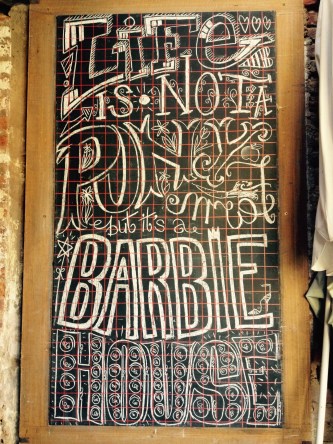 LIFE
IS NOT A
PONY
but it's a
BARBIE
HOUSE